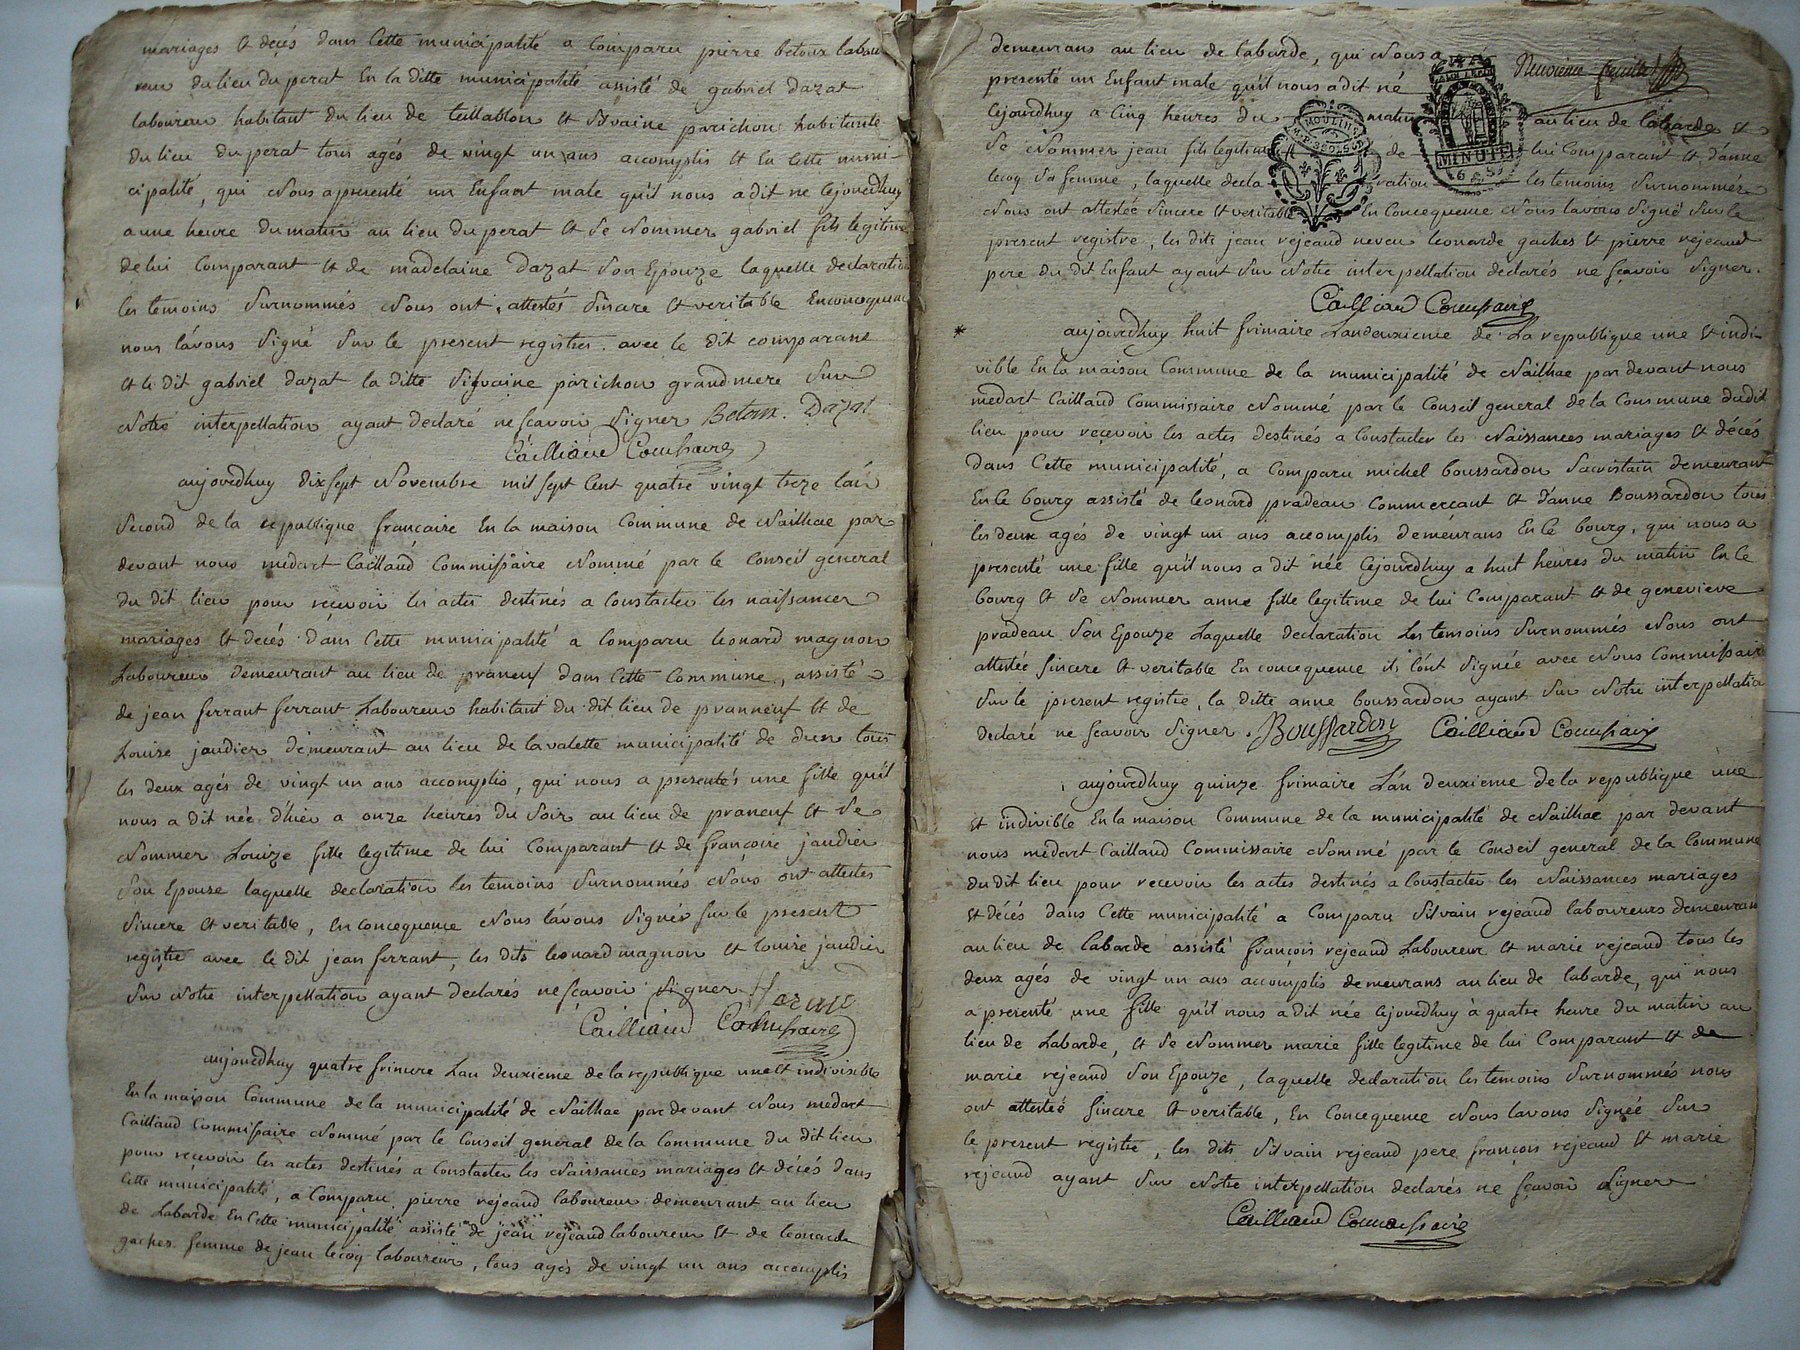 mariages et decés dans Cette municipalité a Comparu pierre betoux labou
reur du lieu du perat En la ditte municipalité assisté de gabriel dazat
laboureur habitant du lieu de et Silvaine parichon habitante
du lieu du perat tous agés de vingt un ans accomplis et En Cette muni-
cipalité, qui Nous apresenté un Enfant male qu'il nous a dit ne Cejourdhuy
a une heure du matin au lieu du perat et de Nommer gabriel fils legitime
de lui Comparant et de madelaine dazat Son Epouze laquelle declaration
les temoins Surnommés Nous ont attestés Sincere et veritable En concequence
nous l'avons Signé Sur le present registre avec le dit comparant
et le dit gabriel dazat la ditte Silvaine parichon grandmere Sur
Notre interpellation ayant declaré ne scavoir Signer Betoux. Dazat
Cailliaud Commissaire
aujourdhuy dix sept Novembre mil sept Cent quatre vingt treze l'an
Second de la republique francaire En la maison Commune de Nailhac par
devant nous medart Caillaud Commissaire Nommé par le Conseil general
du dit lieu pour recevoir les actes destinés a Constacter les naissances
mariages et decés dans Cette municipalité a Comparu leonard magnon
Laboureur demeurant au lieu de praneuf dans Cette Commune, assisté
de jean ferrant ferrant Laboureur habitant du dit lieu de pranneuf et de
Louise jaudier demeurant au lieu de lavalette municipalité de dun tous
les deux agés de vingt un ans accomplis, qui nous a presentés une fille qu'il
nous a dit née d'hièr a onze heures du Soir au lieu de praneuf et de
Nommer Louize fille legitime de lui Comparant et de françoire jaudier
Son Epouze laquelle declaration les temoins Surnommés Nous ont attestés
Sincere et veritable, En concequence Nous l'avons Signés sur le present
registre avec le dit jean ferrant, les dits leonard magnon et louize jaudier
Sur Notre interpellation ayant declarés ne scavoir Signer
Cailliaud Commissaire
aujourdhuy quatre frimere Lan deuxieme de la republique une et indivisible
En la maison Commune de la municipalité de Nailhac par devant Nous medart
Caillaud Commissaire Nommé par le Conseil general de la Commune du dit lieu
pour recevoir les actes destinés a Constacter les Naissances mariages et décés dans
Cette municipalité, a Comparu pierre rejeaud laboureur demeurant au lieu
de Labarde En Cette municipalité assisté de jean rejeaud laboureur et de leonarde
gaches femme de jean lecoq laboureur, tous agés de vingt un ans accomplis
demeurans au lieu de labarde, qui Nous a
Neuvieme feuillet
presenté un Enfant male qu'il nous a dit né
Cejourdhuy a Cinq heures du matin au lieu de labarde et
de Nommer jean fils legitime de lui Comparant et d'anne
MOULINS
MINUTE
lecoq Sa femme, laquelle decla ration les temoins Surnommés
Nous ont attestée Sincere et veritable En Concequence Nous lavons Signé Sur le
present registre, les dits jean rejeaud neveu leonarde gaches et pierre rejeaud
pere du dit Enfant ayant Sur Notre interpellation declarés ne sçavoir Signer.
Cailliaud Commissaire
* aujourdhuy huit frimaire Lan deuxieme de La republique une et indi-
vible En la maison Commune de la municipalité de Nailhac par devant nous
medart Caillaud Commissaire Nommé par le Conseil general de la Commune dudit
lieu pour recevoir les actes destinés a Constacter les Naissances mariages et décés
dans Cette municipalité, a Comparu michel boussardon Sacristain demeurant
En le bourg assisté de leonard pradeau Commercant et d'anne Boussardon tous
les deux agés de vingt un ans accomplis demeurans En le bourg, qui nous a
presenté une fille qu'il nous a dit née Cejourdhuy a huit heures du matin En le
bourg et de Nommer anne fille legitime de lui Comparant et de genevieve
pradeau Son Epouze Laquelle declaration Les temoins Surnommés Nous ont
attestée sincere et veritable En concequence ils l'ont Signée avec Nous Commissaire
Sur le present registre, la ditte anne boussardon ayant Sur Notre interpellation
declaré ne scavoir Signer. Boussardon Cailliaud Commissaire
aujourdhuy quinze frimaire L'an deuxieme de la republique une
et indivible En la maison Commune de la municipalité de Nailhac par devant
nous medart Caillaud Commissaire Nommé par le Conseil general de la Commune
du dit lieu pour recevoir les actes destinés a Constacter les Naissances mariages
et décés dans Cette municipalité a Comparu Silvain rejeaud laboureurs demeurant
au lieu de labarde assisté françois rejeaud Laboureur et marie rejeaud tous les
deux agés de vingt un ans accomplis demeurans au lieu de labarde, qui nous
a presenté une fille qu'il nous a dit née Cejourdhuy à quatre heure du matin au
lieu de Labarde, et de Nommer marie fille legitime de lui Comparant et de
marie rejeaud Son Epouze, laquelle declaration les temoins Surnommés nous
ont attesteé Sincere et veritable, En Concequence Nous lavons Signée Sur
le present registre, les dits Silvain rejeaud pere françois rejeaud et marie
rejeaud ayant Sur Notre interpellation declarés ne sçavoir Signer
Cailliaud Commissaire